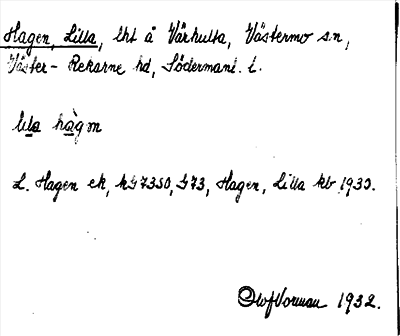 Hagen, Lilla, lht å Vårhulta, Västermo sn,
Väster-Rekarne hd, Södermanl. l.
lila hàgɷn
L. Hagen ek, hg 7350, 573, Hagen, Lilla kb 1930.
Olof Norman 1932.